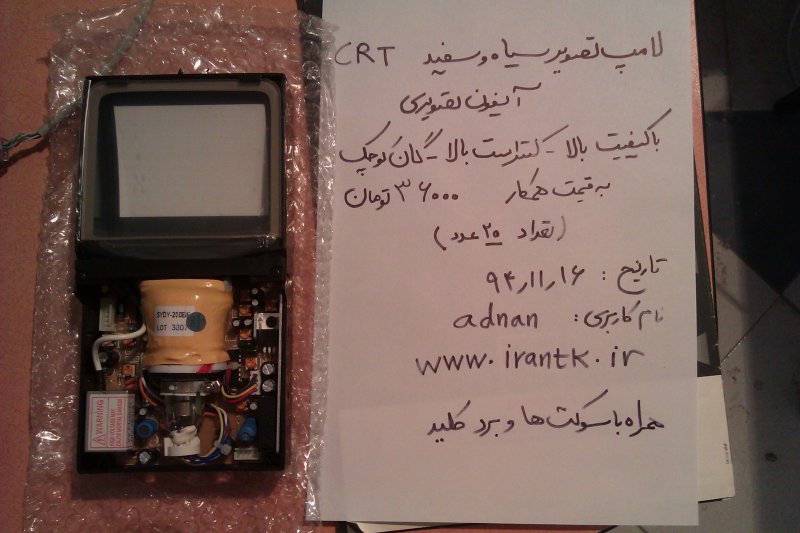 لامپ تصویر سیاه و سفید CRT
آیفون تصویری
با کیفیت بالا - کنتراست بالا - گان کوچک
به قیمت همکار ۳۶۰۰۰ تومان
(تعداد ۲۰ عدد)
تاریخ : ۹۴/۱۱/۱۶
نام کاربری : adnan
www.irantk.ir
همراه با سوکت ها و برد کلید
LOT
WARNING